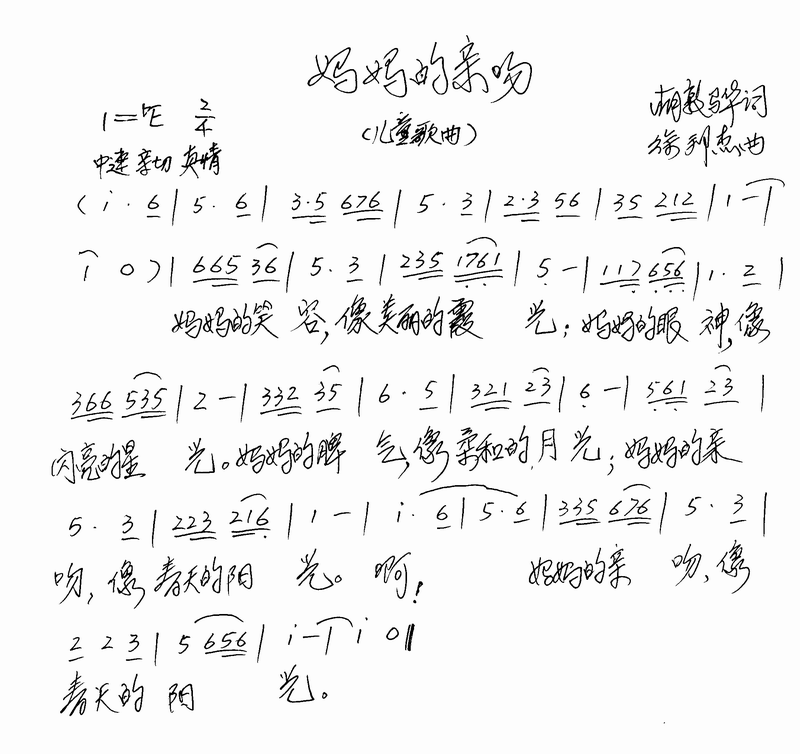 妈妈的亲吻
(儿童歌曲)
1=♭E 2/4
中速 亲切 真情
胡敦华词
徐利杰曲
(i·6|5·6|3·5 676|5·3|2·3 56|35 212|1-|
1 0)|665 36|5·3|235 1761|5-|117 656|1·2|
妈妈的笑 容,像美丽的霞 光;妈妈的眼 神,像
366 535|2-|332 35|6·5|321 23|6-|561 23|
闪亮的星 光。妈妈的脾 气,像柔和的月光;妈妈的亲
5·3|223 216|1-|i·6|5·6|335 676|5·3|
吻,像春天的阳 光。啊! 妈妈的亲 吻,像
2 2 3|5 656|i-|i 0‖
春天的 阳 光。